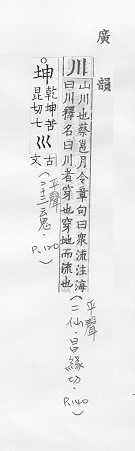 廣韻
川
山川也蔡邕月令章句曰衆流注海
曰川釋名曰川者穿也穿地而流也
平聲
(二仙·昌緣切·P.140)
坤
乾坤苦
昆切七
巛
古
文
平聲
(二十三魂·P.120)